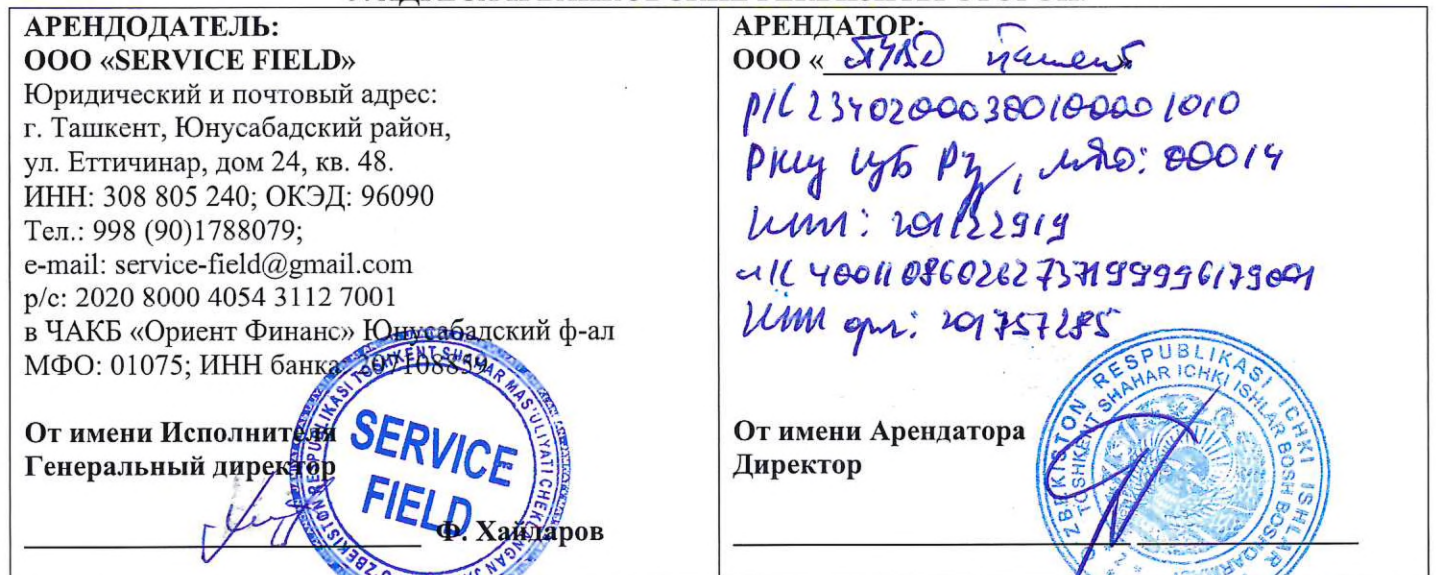 АРЕНДОДАТЕЛЬ:
ООО «SERVICE FIELD»
Юридический и почтовый адрес:
г. Ташкент, Юнусабадский район,
ул. Еттичинар, дом 24, кв. 48.
ИНН: 308 805 240; ОКЭД: 96090
Тел.: 998 (90)1788079;
e-mail: service-field@gmail.com
р/с: 2020 8000 4054 3112 7001
в ЧАКБ «Ориент Финанс» Юнусабадский ф-ал
МФО: 01075; ИНН банка: 207108859
От имени Исполнителя
Генеральный директор
Ф. Хайдаров
SERVICE
FIELD
АРЕНДАТОР:
ООО «
р/с 23402000300100001010
РКЦ ЦБ РУз, МФО: 00014
ИНН: 201122919
л/с 400110860262737199996179001
ИНН орг: 201757285
От имени Арендатора
Директор
O'ZBEKISTON RESPUBLIKASI ICHKI ISHLAR
TOSHKENT SHAHAR ICHKI ISHLAR BOSH BOSHQARMASI